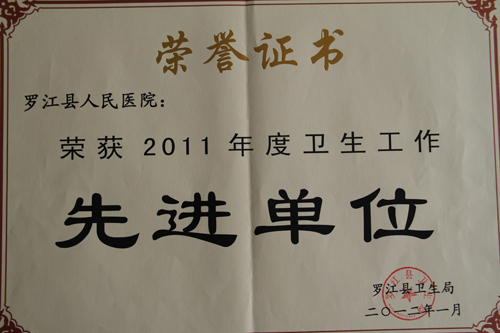 荣誉证书
罗江县人民医院：
荣获 2011 年度卫生工作
先进单位
罗江县卫生局
二〇一二年一月